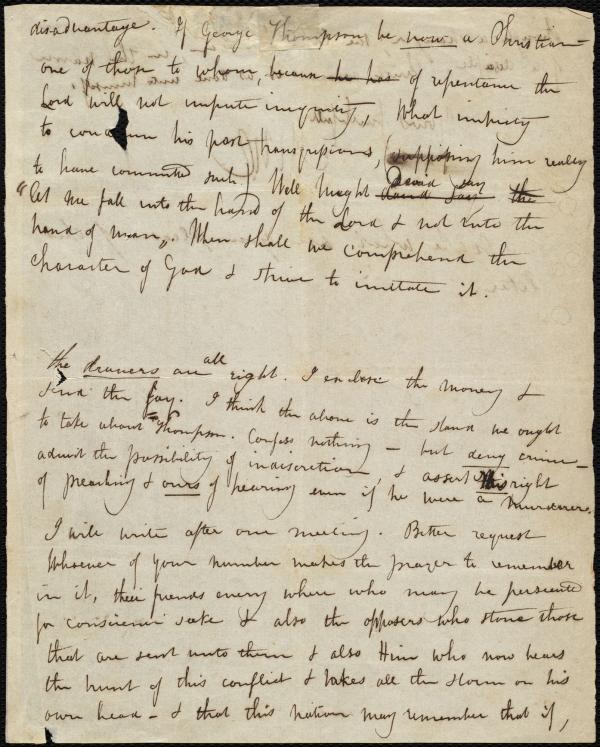 disadvantage. If George Thompson be now a Christian
one of those to whom, because he has of repentance the
Lord will not impute iniquity, What impiety
to condemn his past transgressions, (supposing him really
to have committed such.) Well might David say the
"let me fall into the hand of the Lord & not into the
hand of man". When shall we comprehend the
character of God & strive to imitate it.
the drawers are all right. I enclose the money &
send the Jay. I think the above is the stand we ought
to take about Thompson. Confess nothing – but deny crime –
admit the possibility of indiscretion, & assert his right
of preaching & ours of hearing even if he were a murderer.
I will write after our meeting. Better request
Whosoever of your number makes the prayer to remember
in it, their friends every where who may be persecuted
for conscience sake & also the opposers who stone those
that are sent unto them & also Him who now bears
the brunt of this conflict & takes all the storm on his
own head – & that this nation may remember that if,